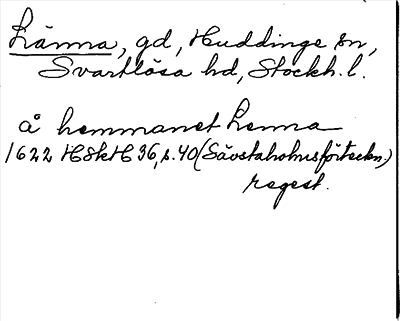 Länna, gd, Huddinge sn,
Svartlösa hd, Stockh. l.
å hemmanet Lenna
1622 HSkH 36, s. 40 (Sävstaholmsförteckn.)
regest.